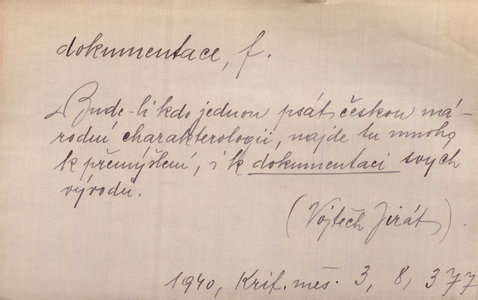 dokumentace, f.
Bude-li kdo jednou psát českou ná-
rodní charakterologii, najde tu mnoho
k přemýšlení, i k dokumentaci svých
vývodů.
(Vojtěch Jirát).
1940, Krit. měs. 3, 8, 377